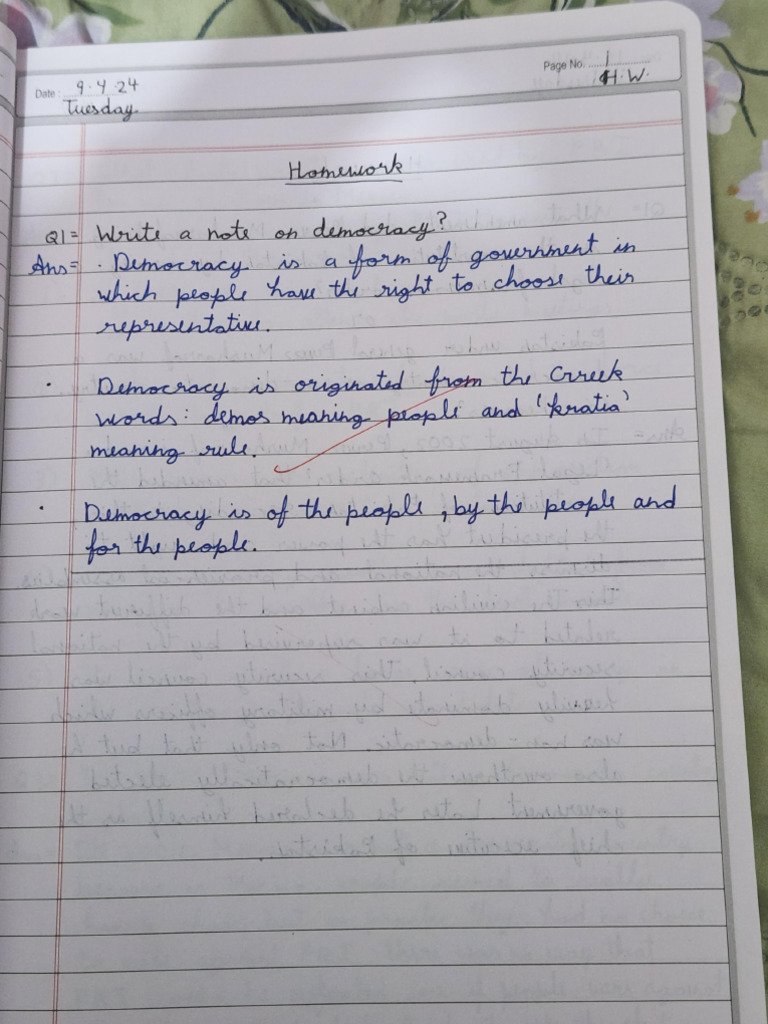 Date: 9.4.24
Page No. 1
H.W.
Tuesday
Homework
Q1= Write a note on democracy?
Ans= · Democracy is a form of government in
which people have the right to choose their
representative.
· Democracy is originated from the Greek
words: demos meaning people and 'kratia'
meaning rule.
· Democracy is of the people, by the people and
for the people.